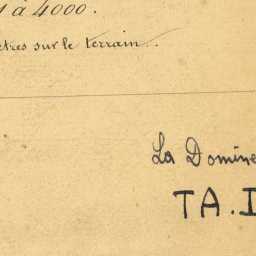 1 à 4000.
ètres sur le terrain.
La Domine
TA.I